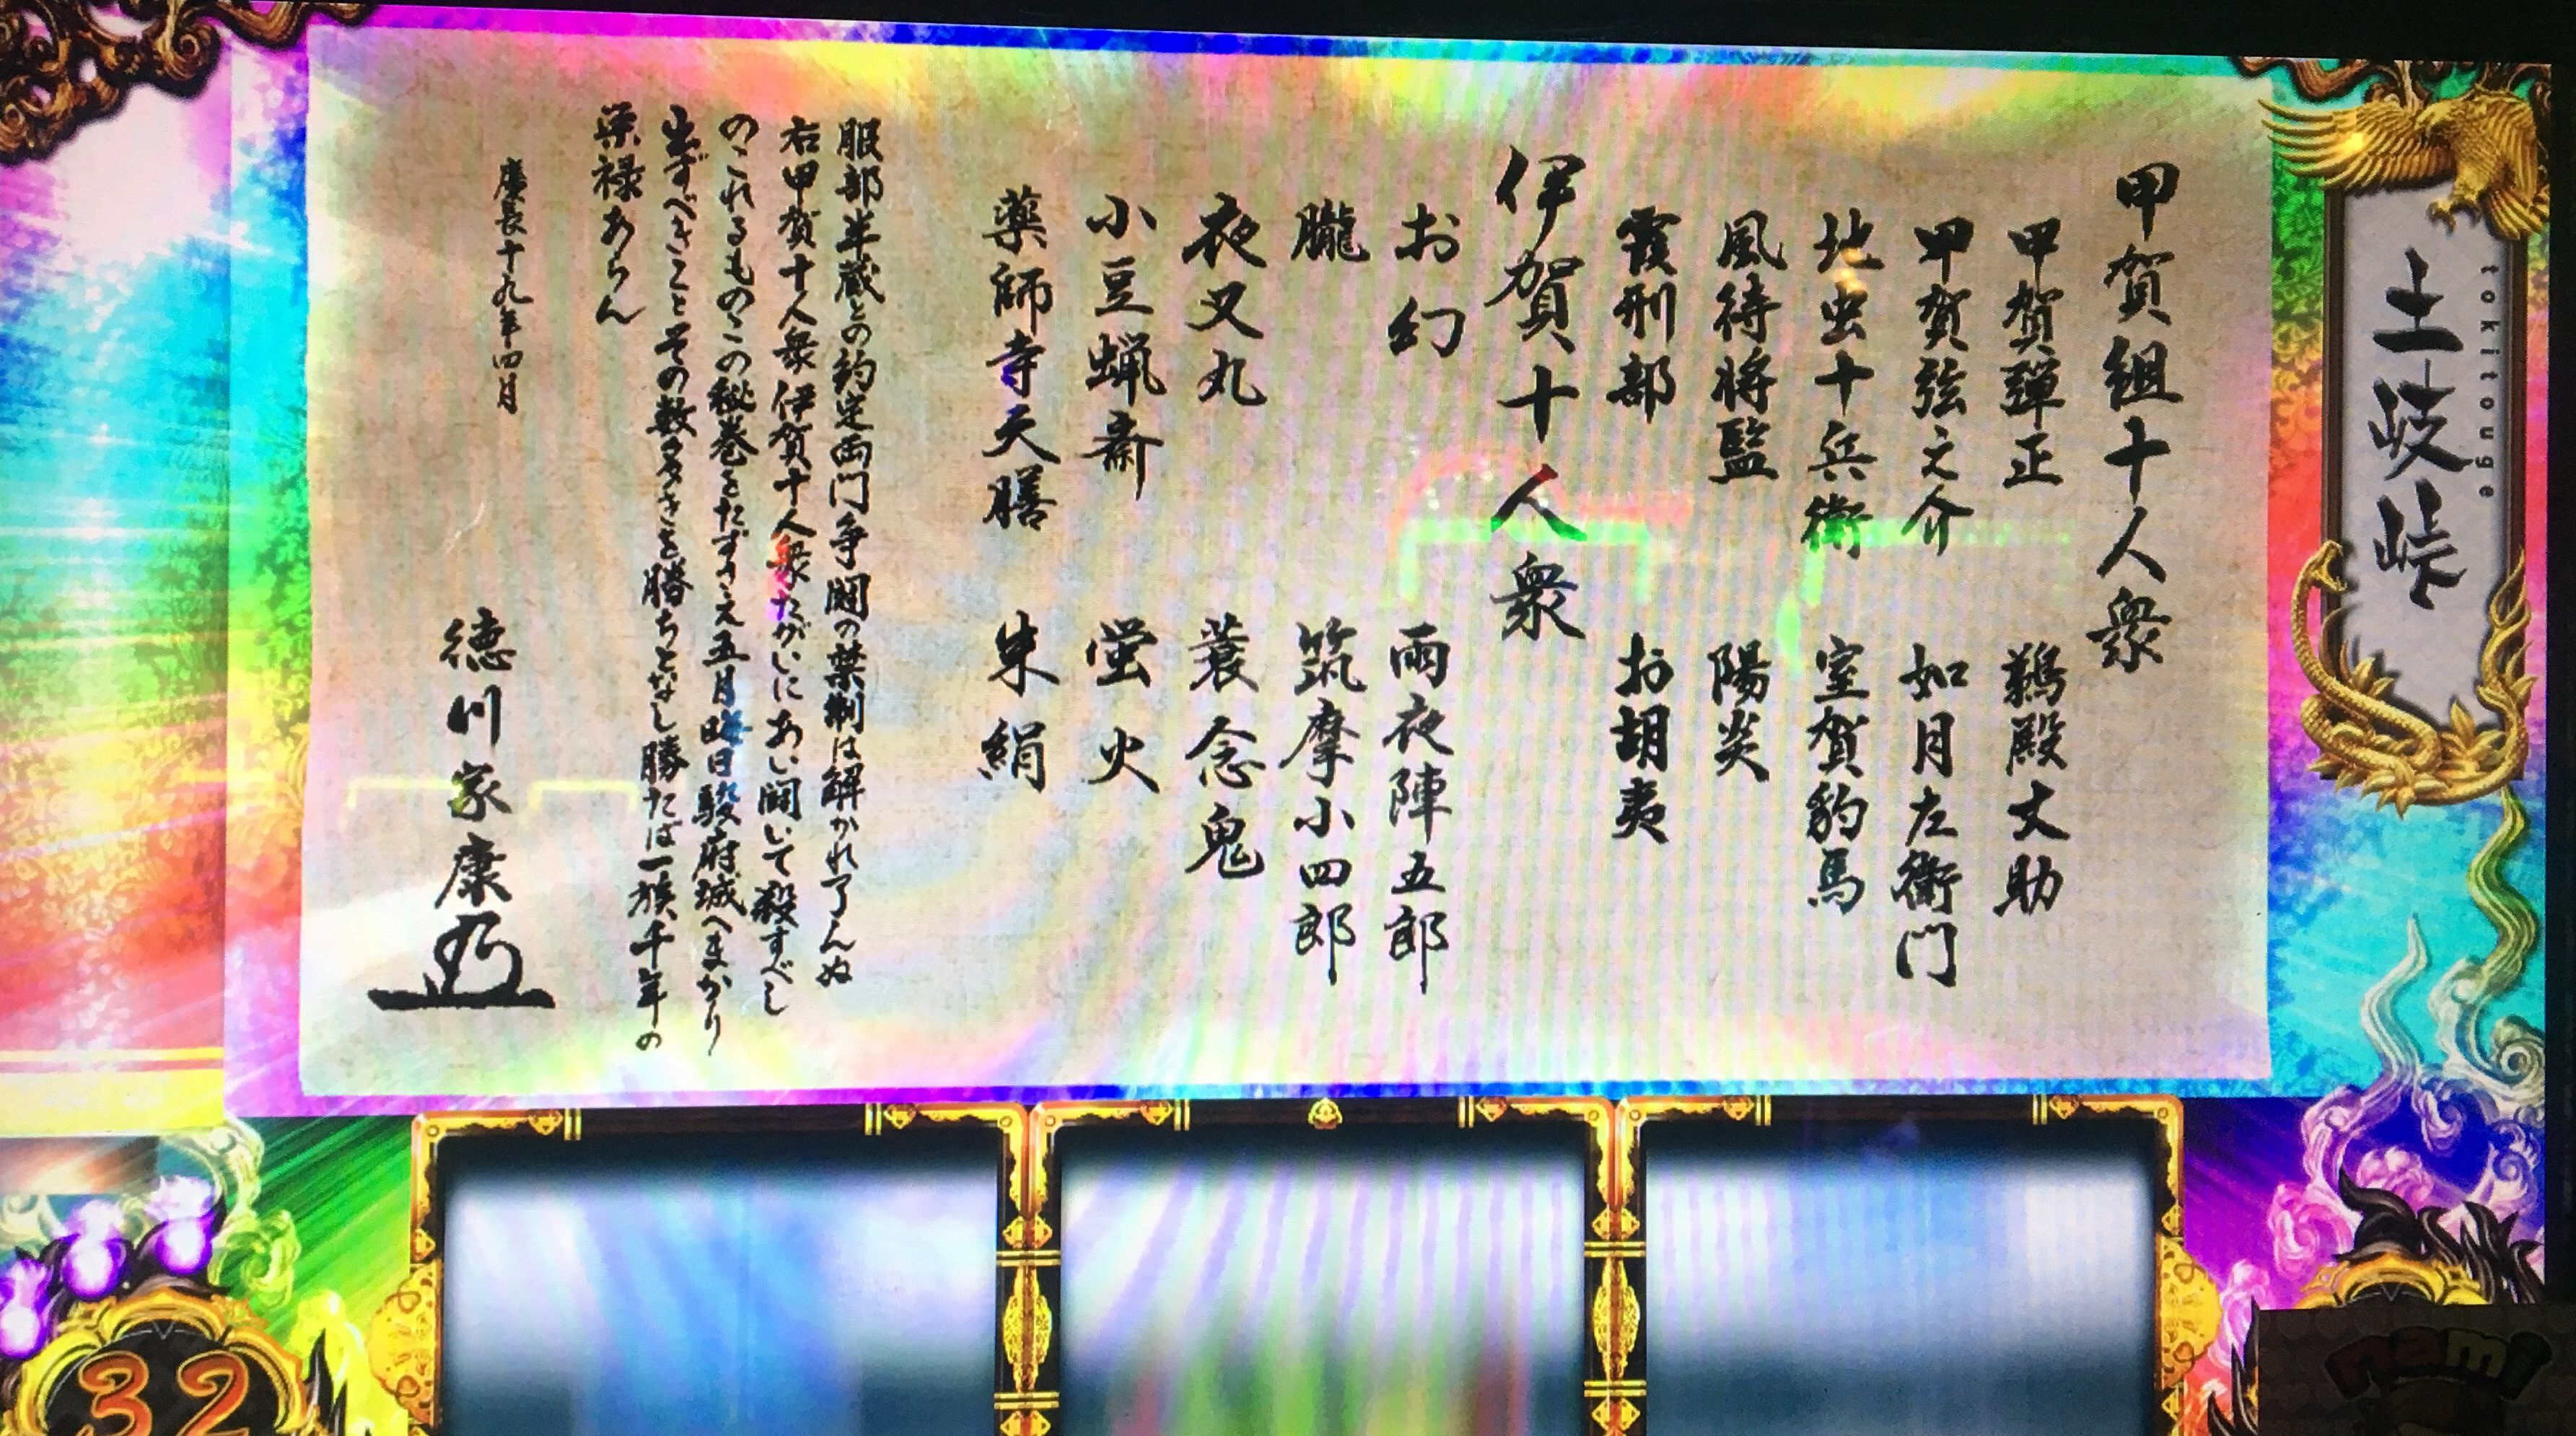 甲賀組十人衆
甲賀弾正　鵜殿丈助
甲賀弦之介　如月左衛門
地虫十兵衛　室賀豹馬
風待将監　陽炎
霞刑部　お胡夷
伊賀十人衆
お幻　雨夜陣五郎
朧　筑摩小四郎
夜叉丸　蓑念鬼
小豆蝋斎　蛍火
薬師寺天膳　朱絹
服部半蔵との約定両門争闘の禁制は解かれ了んぬ
右甲賀十人衆伊賀十人衆たがいにあい闘いて殺すべし
のこれるものこの秘巻をたずさえ五月晦日駿府城へまかり
出ずべきことその数多きを勝ちとなし勝たば一族千年の
栄禄あらん
慶長十九年四月
徳川家康
土岐峠
tokitouge
32
nami